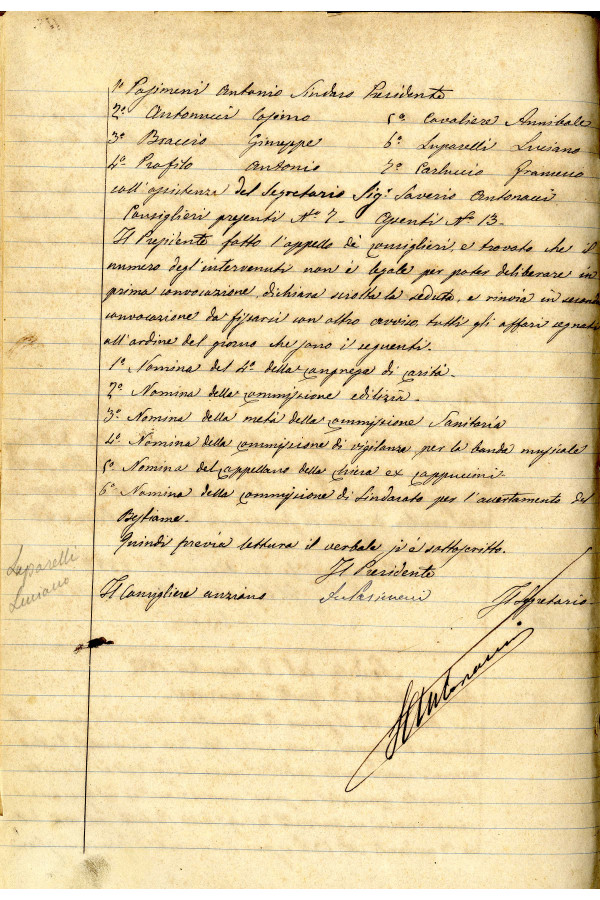 1º Pasimeni Antonio Sindaco Presidente
2º Antonucci Cosimo 5º Cavaliere Annibale
3º Braccio Giuseppe 6º Luparelli Luciano
4º Profilo Antonio 7º Carluccio Francesco
coll'assistenza del Segretario Sig. Saverio Antonacci
Consiglieri presenti Nº 7 - Assenti Nº 13-
Il Presidente fatto l'appello dè Consiglieri, e trovato che il
numero degl'intervenuti non è legale per poter deliberare in
prima convocazione, dichiara sciolta la seduta, e rinvia in seconda
convocazione da fissarsi con altro avviso, tutti gli affari segnati
all'ordine del giorno che sono i seguenti.
1º Nomina del 4º della Congrega di carità.
2º Nomina della Commissione edilizia.
3º Nomina della metà della Commissione Sanitaria
4º Nomina della Commissione di vigilanza per la banda musicale
5º Nomina del Cappellano della Chiesa ex Cappuccini
6º Nomina della Commissione di Sindacato per l'accertamento del
Bestiame.
Quindi previa lettura il verbale si è sottoscritto.
Il Presidente
Il Consigliere anziano Pasimeni Il Segretario
Luparelli
Luciano
SAntonacci